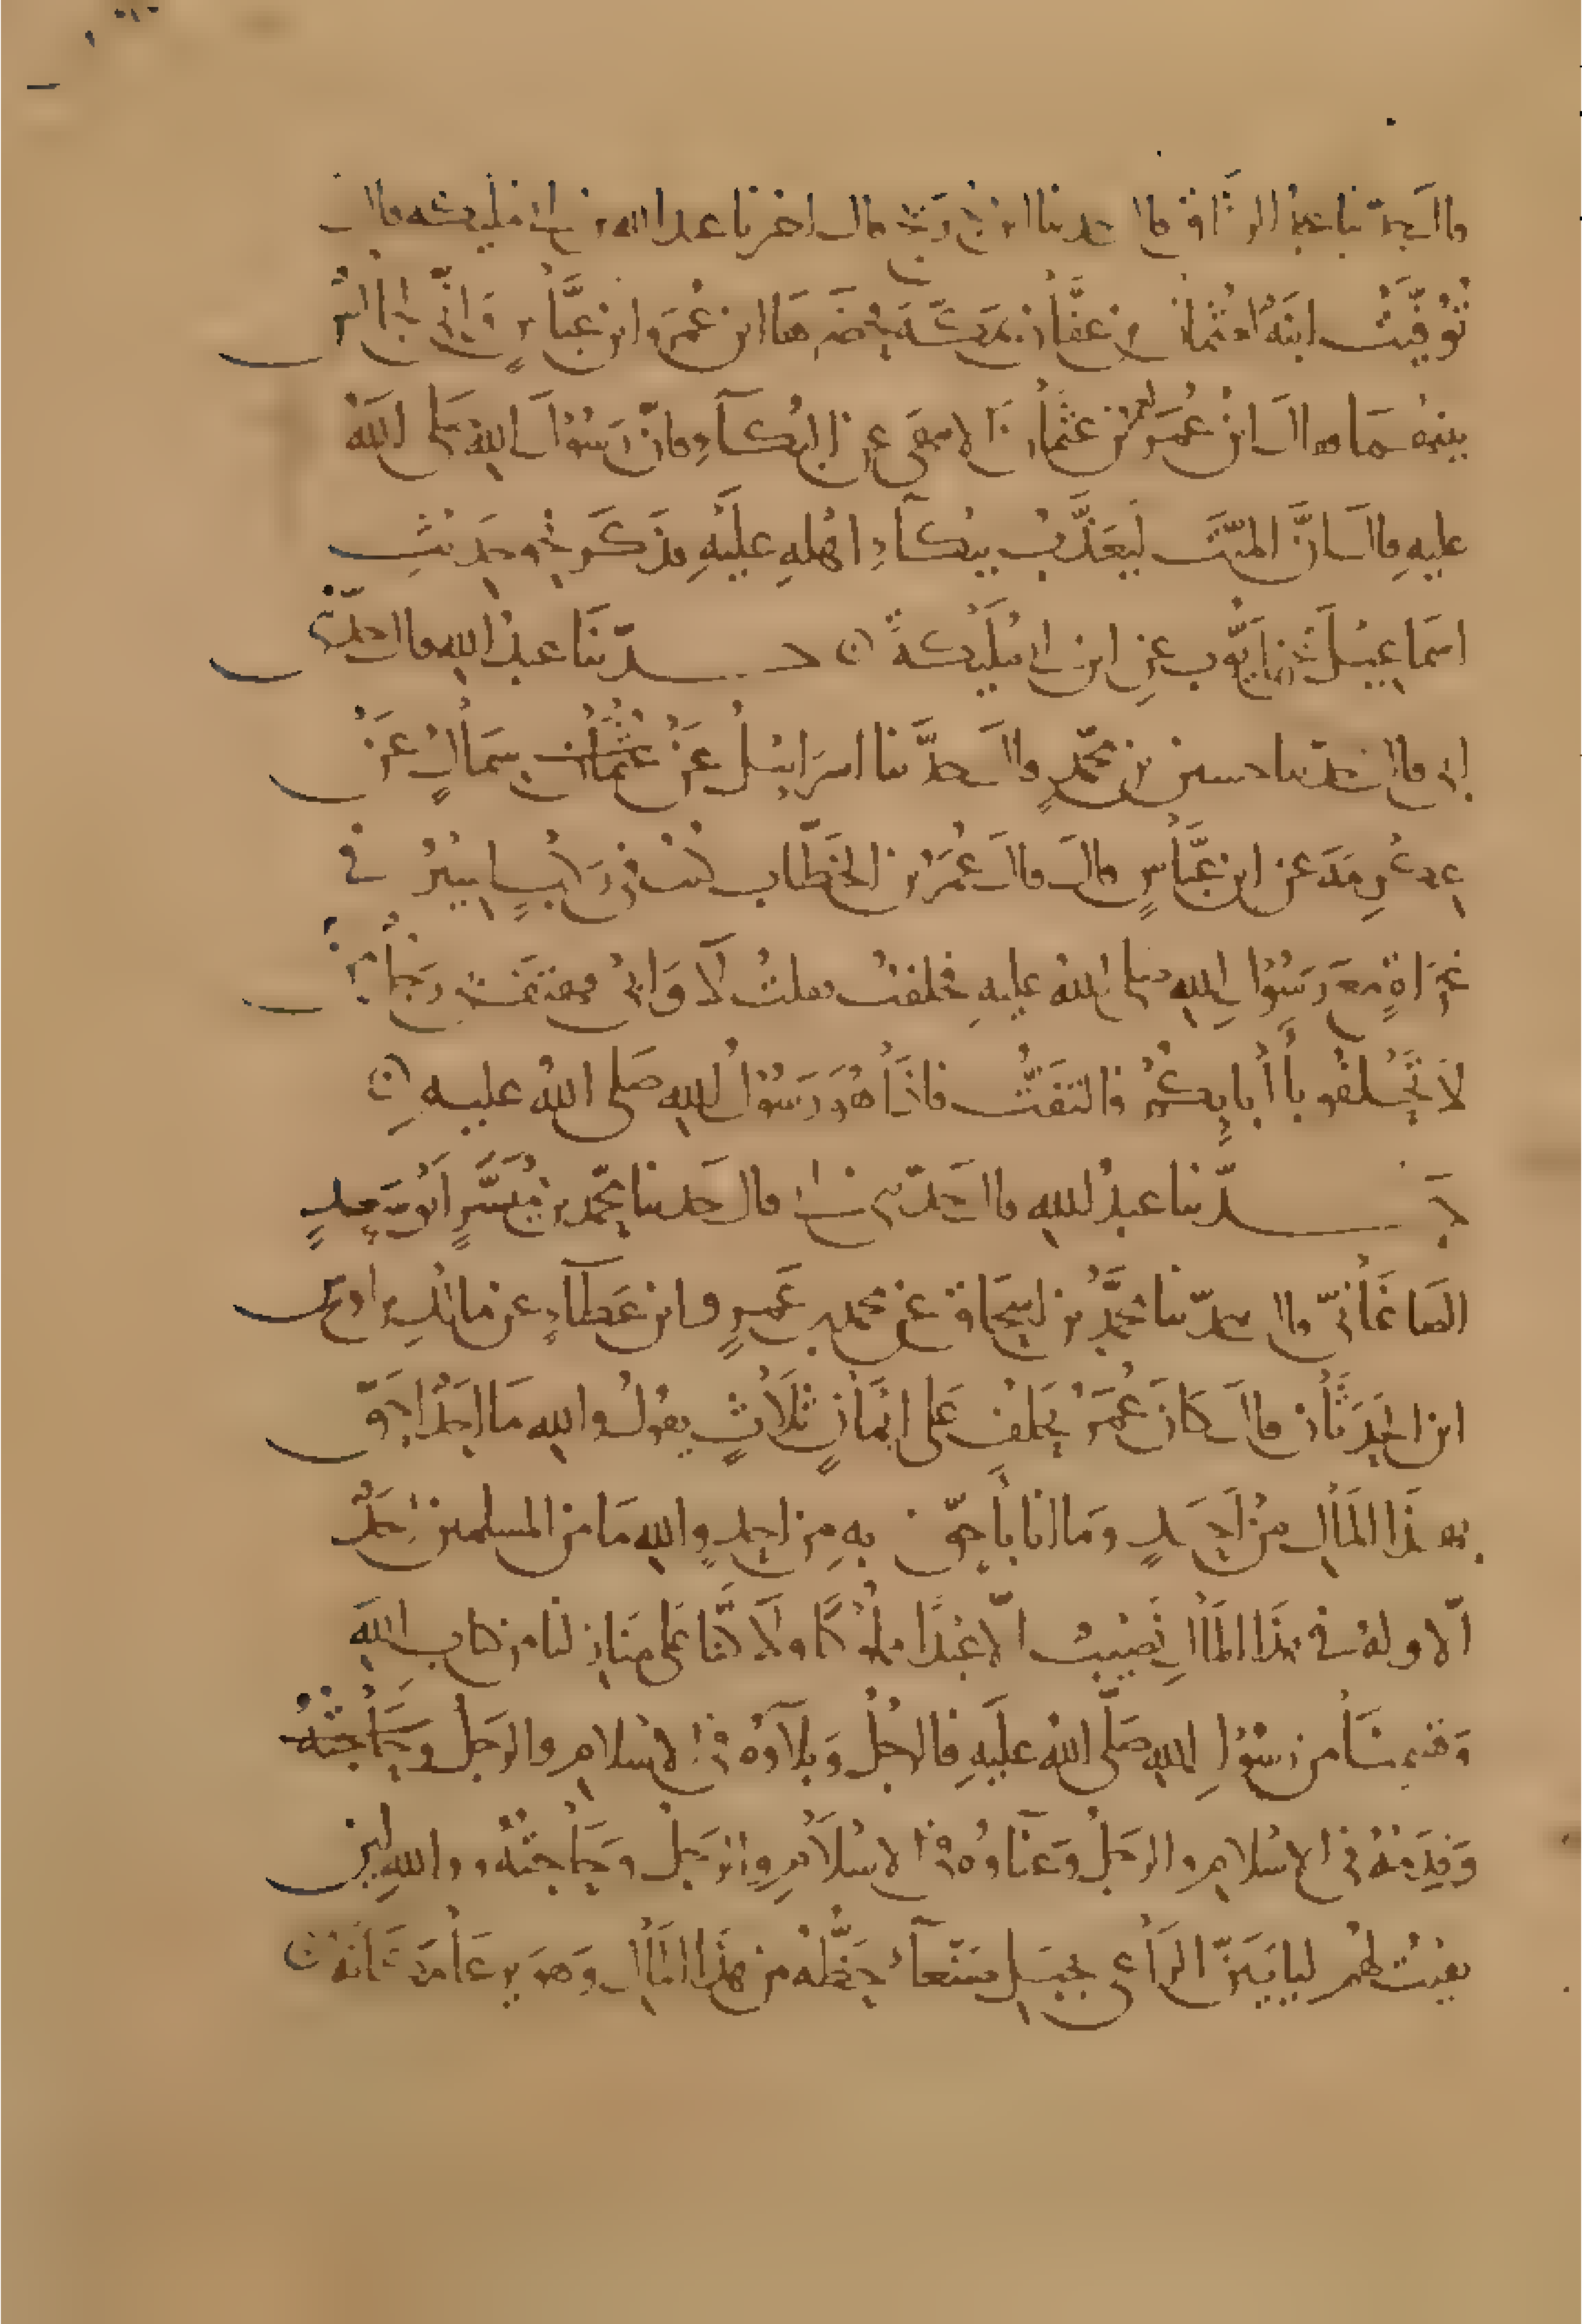 قال حدثنا عبد الرزاق قال حدثنا ابن جريج قال اخبرنا عبد الله بن ابي مليكه قال
تُوُفّيَتْ ابنَةٌ لعثمان بن عفّان بمكّة فحضرها ابن عُمَرَ وابن عبّاسٍ وَانّي لجالسٌ
بينهُما فقال ابن عُمَرَ لعمرو بن عثمان الا تنهَى عن البُكآءِ فانّ رَسُولَ اللهِ صَلى اللهُ
عليهِ قال انَّ الميّتَ ليُعَذَّبُ ببُكآءِ اهْلهِ عليْهِ فذَكَر نحو حديثِ
اسماعيْلَ عن ايّوب عن ابن ابي مُلَيْكةَ حدّثنا عبدُ اللهِ قال حدّثني
ابي قال حدّثنا حسين بن محّمدٍ قال حدَّثنا اسرَايئلُ عَنْ سِمَاكٍ عَنْ
عِكْرِمَة عن ابن عبَّاسٍ قال قال عُمَرُ بن الخطّاب كنت في رَكْبٍ اسِيْرُ في
غَزَاةٍ معَ رَسُوْلِ اللهِ صلى اللهُ عليهِ فحلفتُ فقلتُ لَا وَابي فهتف بي رَجُلٌ من خلفي
لَا تَحْلفُو بأابايِكُمْ فالتَفَتُّ فاذَا هُوَ رَسُوْلُ اللهِ صَلى اللهُ عليهِ
حدّثنا عبدُ اللهِ قال حَدّثني ابي قال حَدثنا محّمد بن مُيَسَّرٍ ابُو سَعِيدٍ
الصَاغَانيّ قال حدّثنا محمَّدُ بن اسحَاق عن محمد بن عَمرٍو ابن عَطآءٍ عن مالكِ بن اوْسِ
ابن الحَدَثَان قال كانَ عُمَرُ يَحلفُ عَلى ايمَانٍ ثلَاثٍ يقولُ واللهِ مَا احَدٌ احَقّ
بهذَا المَالِ مِنْ احَدٍ وَما انا بأحقّ بهِ مِن احدٍ واللهِ مَا من المسلمين احَدٌ
الّا ولهُ في هذَا المَالِ نَصِيبٌ الّا عَبْدًا مملُوكًا ولَاكنَّا عَلى مَنَازِلنا من كتابِ اللهِ
وَقَسْمِنَا من رسُوْلِ اللهِ صَلّى اللهُ عليَهِ فالرجُلُ وَبلَآوُهُ في الاسْلامِ والرَجلُ وحَاجتُهُ
وَقِدَمُهُ في الاسْلامِ والرجلُ وَغنآوُهُ في الاسْلَامِ والرَجلُ وحَاجتُهُ وواللهِ لئِن
بقيتُ لهُم لياتيَنّ الرَاعي بجبَلِ صَنْعآءَ حَظُّهُ من هذَا المَالِ وَهوَ يرعَا مَكَانَهُ